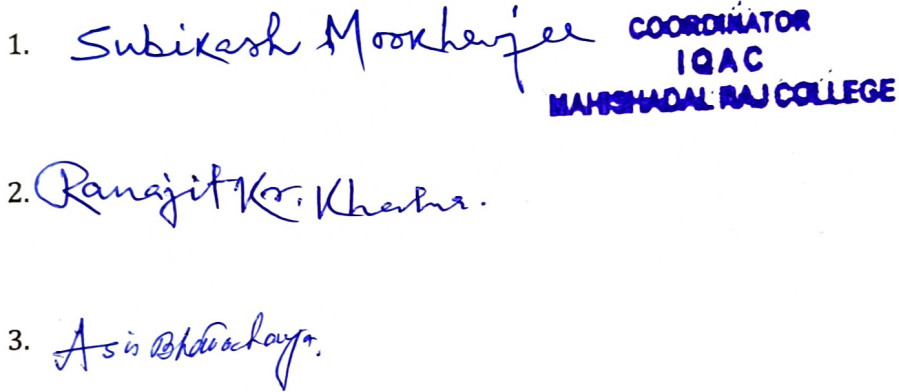 1. Subikash Mookherjee
COORDINATOR
IQAC
MAHISHADAL RAJ COLLEGE
2. Ranajit Kr. Khatua.
3. Asis Bhattacharya.